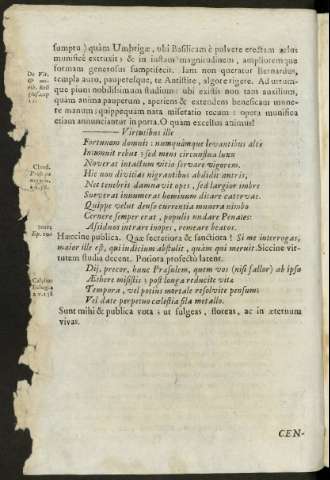 sumptu) quàm Umbrigæ, ubi Basilicam è pulvere erectam
munificè extruxit; & in iustam magnitudinem, amplioremque
formam generosus sumptificit. Iam non queratur Bernardus,
templa auro, pauperesque, te Antistite, algore rigere. Ad utrum-
que pium nobilissimum studium: ubi existis non tam auxilium,
quam anima pauperum, aperiens & extendens beneficam mune-
re manum; quippe quam nata miseratio tecum: opera munifica
etiam annunciantur in porta. O quam excelsus animus!
Virtutibus ille
Fortunam domuit: numquámque levantibus altè
Intumuit rebus: sed mens circumflua luxu
Noverat intactum vitio servare vigorem.
Hic non divitias nigrantibus abdidit antris,
Nec tenebris damnavit opes, sed largior imbre
Sueverat innumeras hominum ditare catervas.
Quippe velut denso currentia munera nimbo
Cernere semper erat, populis undare Penates:
Assiduos intrare inopes, remeare beatos.
Hæccine publica. Quæ secretiora & sanctiora? Si me interrogas,
maior ille est, qui indicium abstulit, quàm qui meruit. Siccine vir-
tutem studia decent. Potiora profectò latent.
Dij, precor, hunc Præsulem, quem vos (nisi fallor) ab ipso
Æthere misistis; post longa reducite vitæ
Tempora, vel potius mortale resolvite pensum;
Vel date perpetuo cælestia fila metallo.
Sunt mihi & publica vota; ut fulgeas, floreas, ac in æternum
vivas.
CEN-